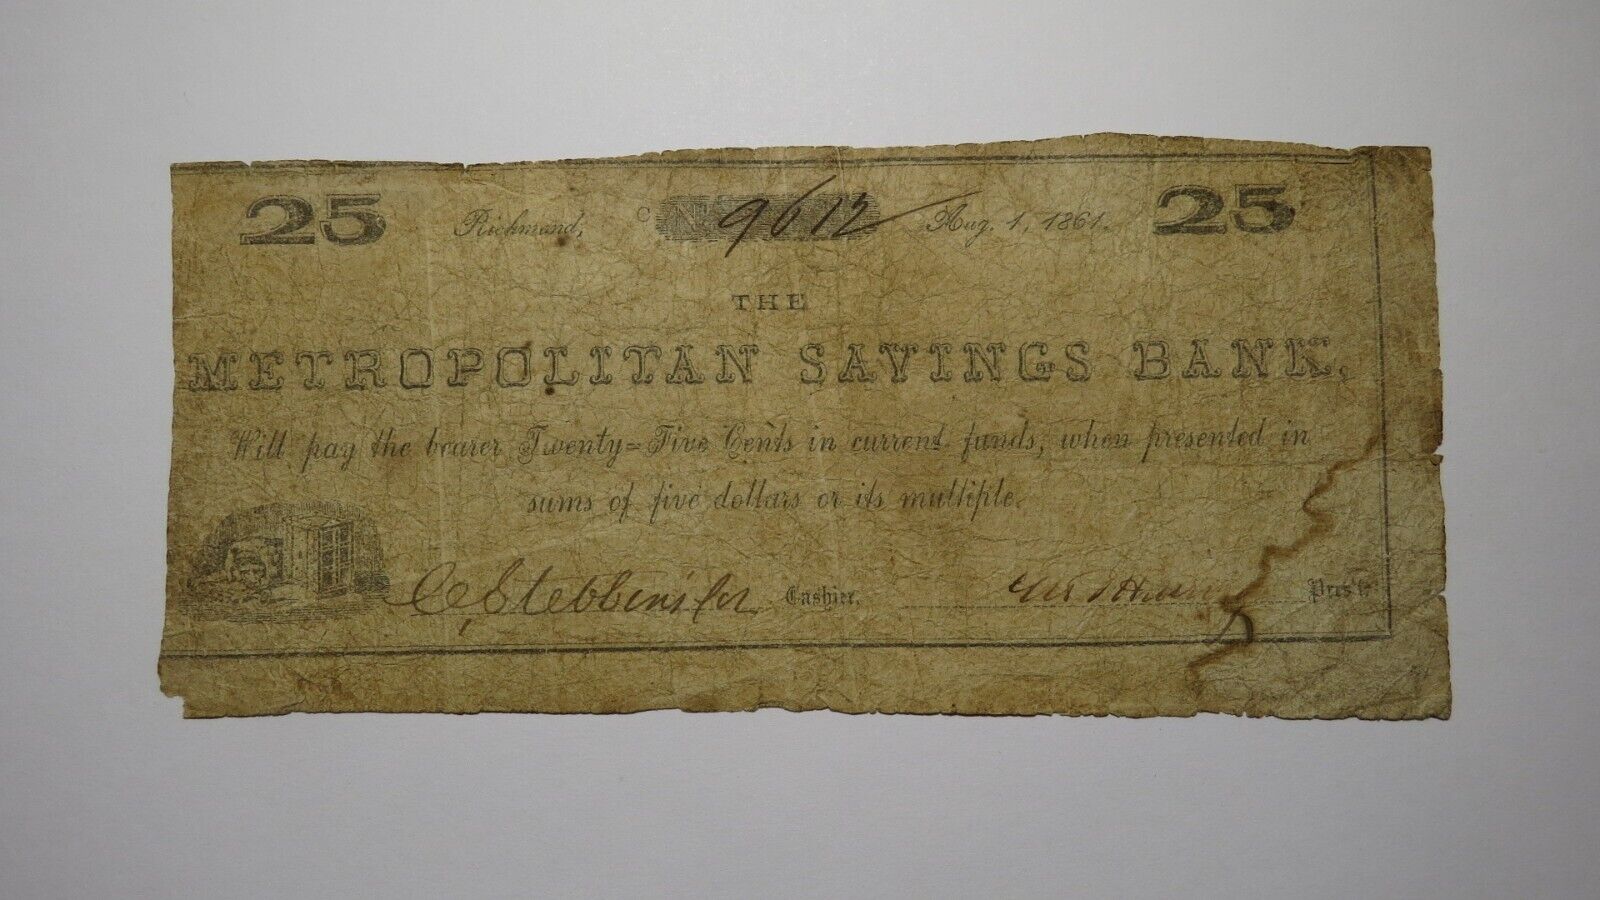 25 Richmond, C No 9612 Aug. 1, 1861. 25
THE
METROPOLITAN SAVINGS BANK,
Will pay the bearer Twenty=Five Cents in current funds, when presented in
sums of five dollars or its multiple.
Cashier. Pres't